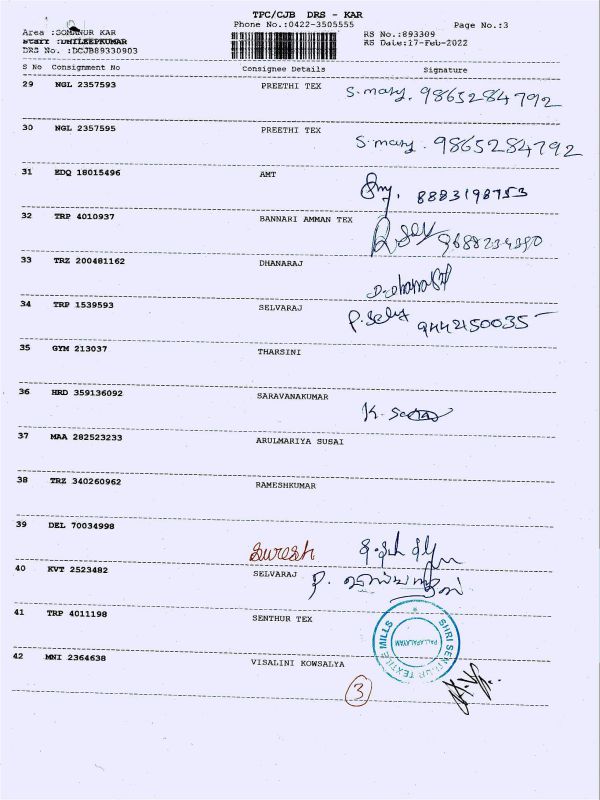 TPC/CJB DRS - KAR
Phone No.:0422-3505555 Page No.:3
Area :SOMANUR KAR RS No.:893309
Staff :DHILEEPKUMAR RS Date:17-Feb-2022
DRS No. :DCJB89330903
S No Consignment No Consignee Details Signature
29 NGL 2357593 PREETHI TEX S.mary. 9865284792
30 NGL 2357595 PREETHI TEX S.mary. 9865284792
31 EDQ 18015496 AMT 8883198753
32 TRP 4010937 BANNARI AMMAN TEX 9688234390
33 TRZ 200481162 DHANARAJ
34 TRP 1539593 SELVARAJ P.Selv 9442150035
35 GYM 213037 THARSINI
36 HRD 359136092 SARAVANAKUMAR K.
37 MAA 282523233 ARULMARIYA SUSAI
38 TRZ 340260962 RAMESHKUMAR
39 DEL 70034998 Suresh
40 KVT 2523482 SELVARAJ P.
41 TRP 4011198 SENTHUR TEX
SHRI SENTHUR TEXTILE MILLS
PALLAPALAYAM
42 MNI 2364638 VISALINI KOWSALYA
3